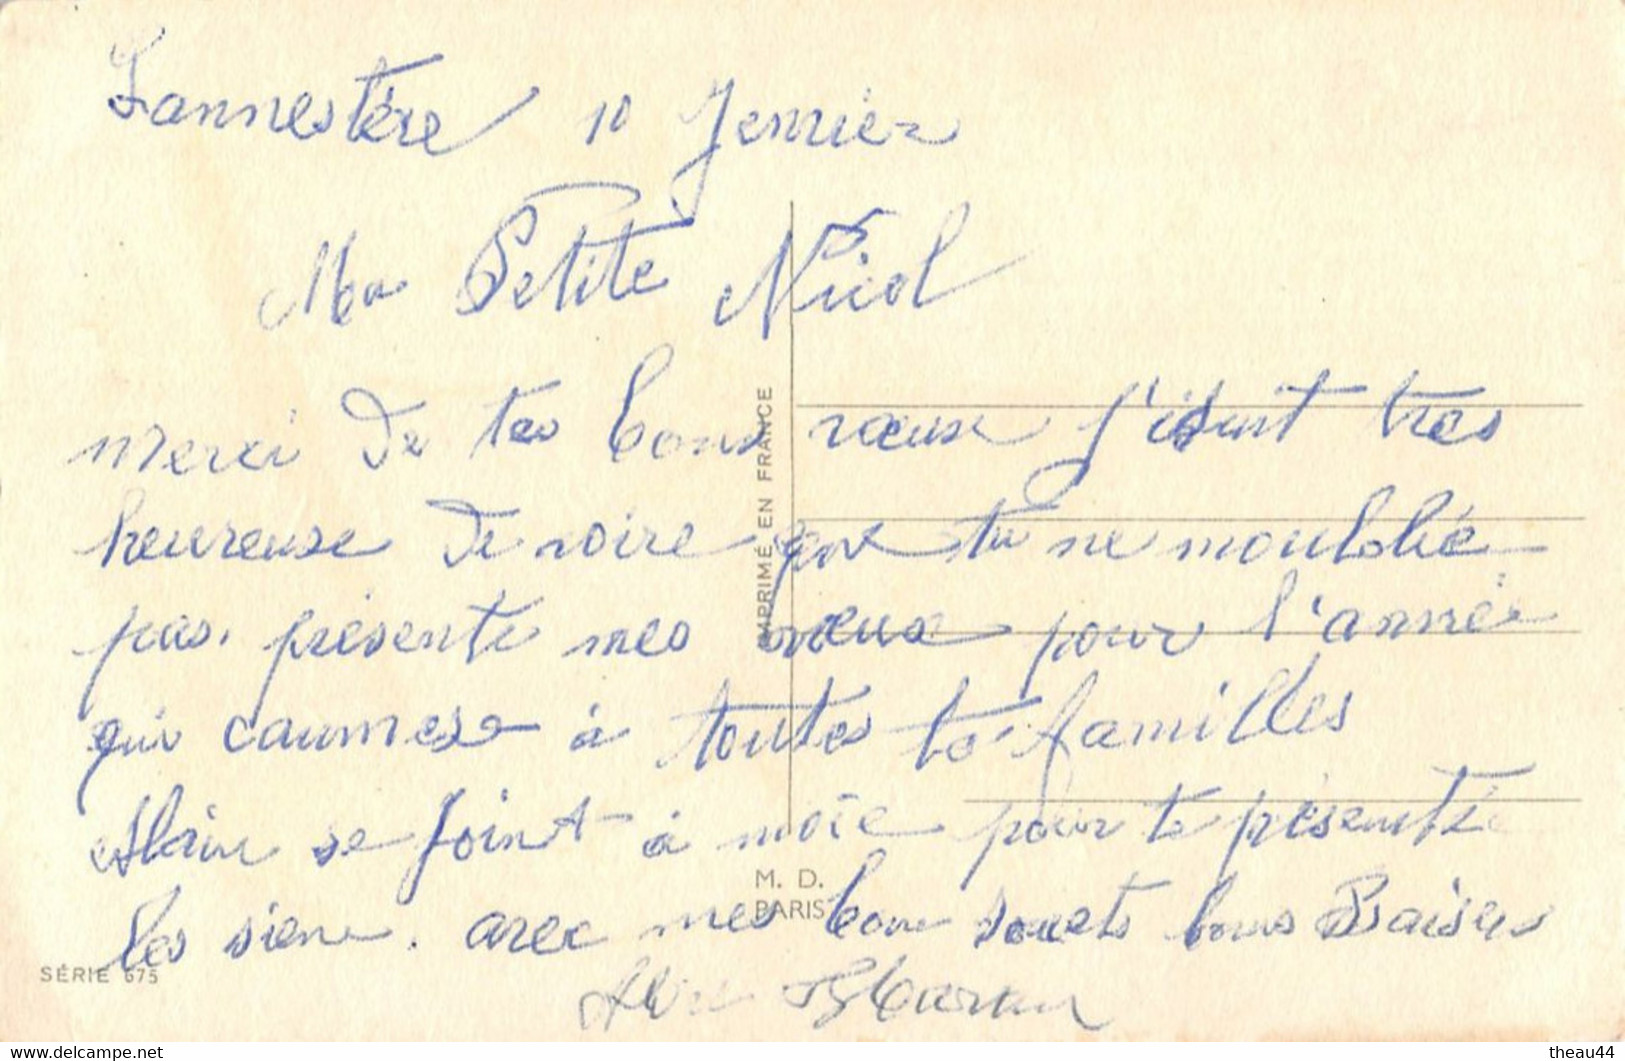 Lannestère 10 Jenvier
Ma Petite Nicol
merci de tes bons vœux j'ésuit tres
heureuse de voire que tu ne moublié
pas. présente mes vœux pour l'année
qui caumese à toutes ta familles
Alain se joint à moie pour te présenté
les siens. avec mes bon souets bons Baisers
IMPRIMÉ EN FRANCE
M. D.
PARIS
SÉRIE 675
theau44